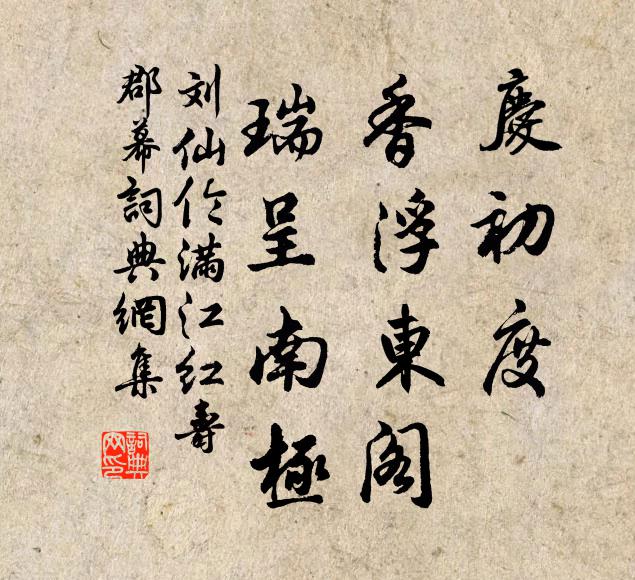 慶初度
香浮東阁
瑞呈南極
刘仙伦满江红寿
郡幕詞典網集
詞典网印